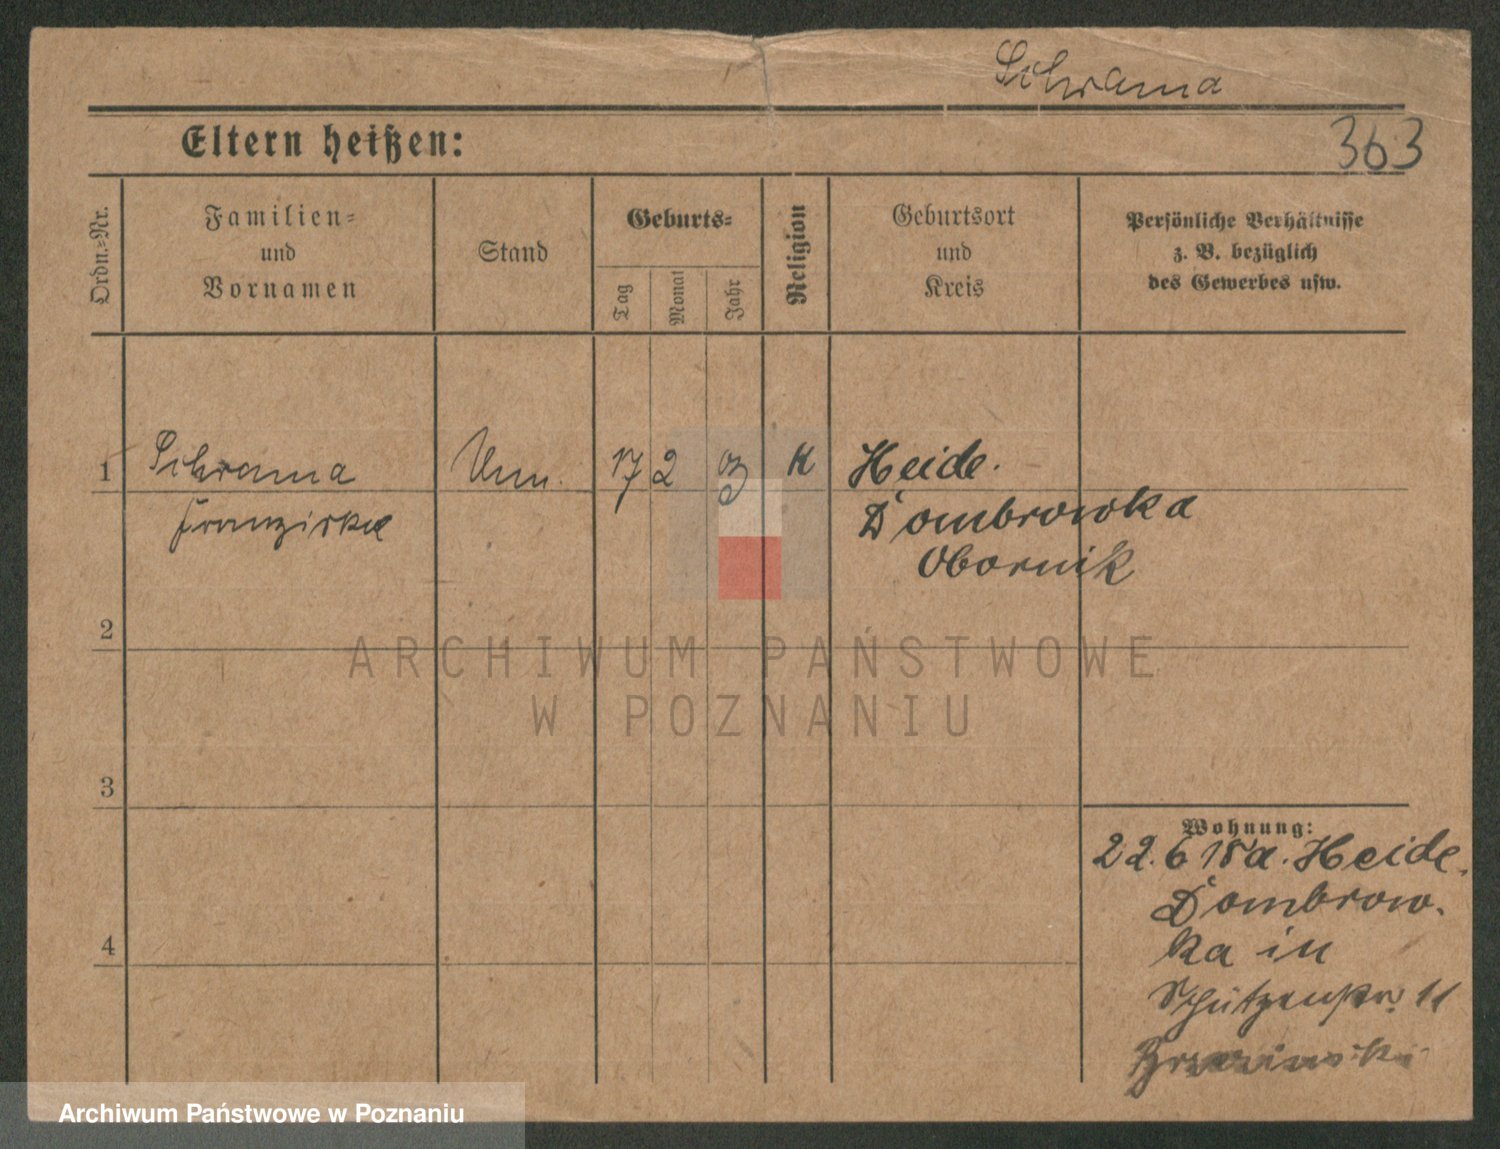 Schrama
Eltern heißen:
363
Ordn.=Nr.
Familien=
und
Vornamen
Stand
Geburts=
Tag
Monat
Jahr
Religion
Geburtsort
und
Kreis
Persönliche Verhältnisse
z. B. bezüglich
des Gewerbes usw.
1
Schrama
Franziska
2
K
Heide.
Dombrowka
Obornik
17
2
3
4
Wohnung:
22. 6 18 a. Heide.
Dombrow-
ka in
Schützenstr. 11
Brzezinski
ARCHIWUM PAŃSTWOWE
W POZNANIU
Archiwum Państwowe w Poznaniu